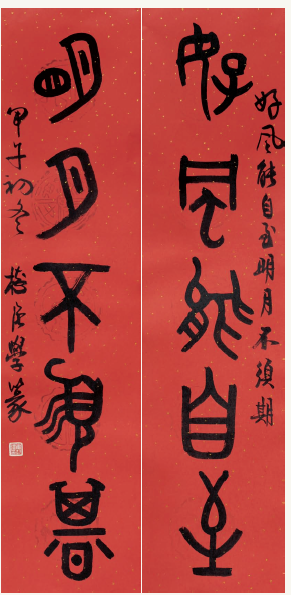 好风能自至明月不须期
好風能自至
明月不須期
甲午初冬
學篆